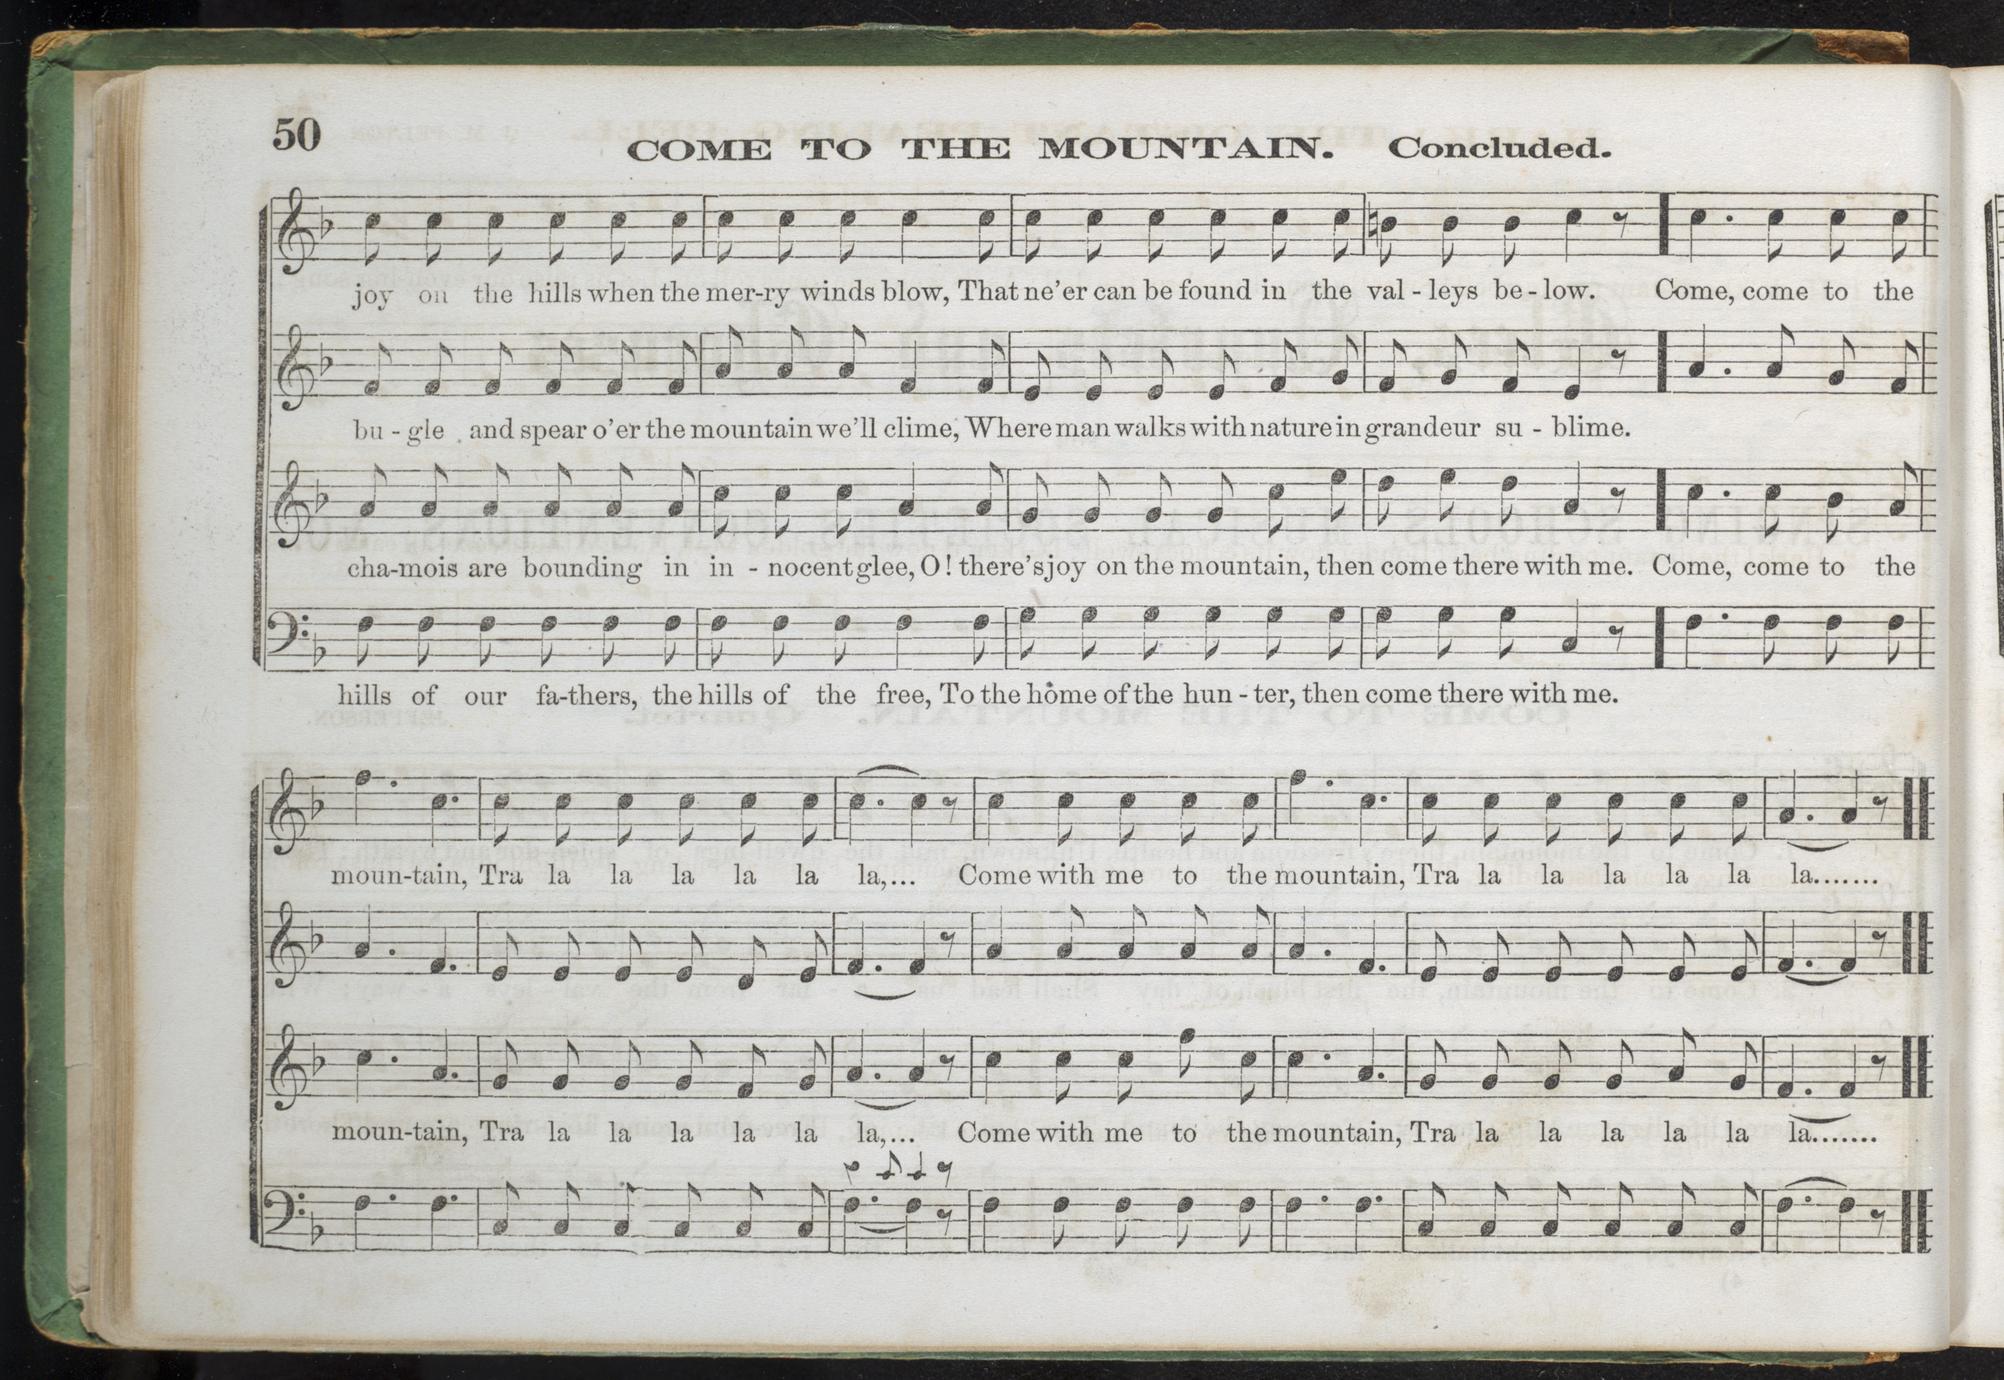 50
COME TO THE MOUNTAIN. Concluded.
joy on the hills when the mer-ry winds blow, That ne'er can be found in the val - leys be - low. Come, come to the
bu - gle and spear o'er the mountain we'll clime, Where man walks with nature in grandeur su - blime.
cha-mois are bounding in in - nocent glee, O! there's joy on the mountain, then come there with me. Come, come to the
hills of our fa-thers, the hills of the free, To the home of the hun - ter, then come there with me.
moun-tain, Tra la la la la la la,... Come with me to the mountain, Tra la la la la la la.......
moun-tain, Tra la la la la la la,... Come with me to the mountain, Tra la la la la la la.......